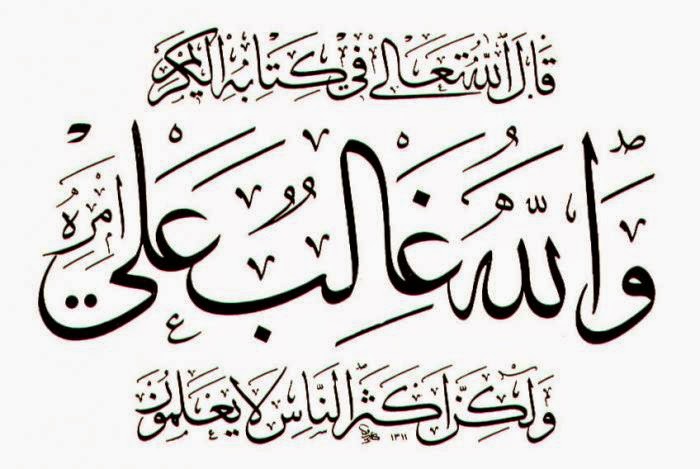 قَالَ اللّٰهُ تَعَالٰى فِي كِتَابِهِ الْكَرِيمِ
وَاللّٰهُ غَالِبٌ عَلٰى اَمْرِهِ
وَلٰكِنَّ اَكْثَرَ النَّاسِ لَا يَعْلَمُونَ
١٣١١